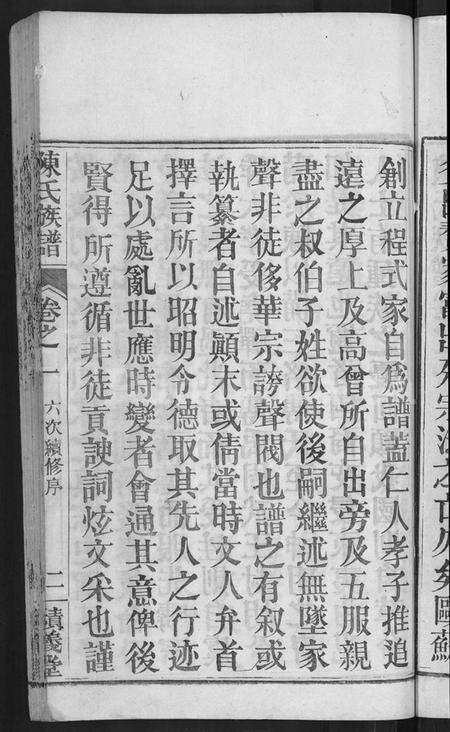 創立程式家自爲譜蓋仁人孝子推追
遠之厚上及高曾所自出旁及五服親
盡之叔伯子姓欲使後嗣繼述無墜家
聲非徒侈華宗誇聲閥也譜之有叙或
執纂者自述顚末或倩當時文人弁首
擇言所以昭明令德取其先人之行迹
足以處亂世應時變者會通其意俾後
賢得所遵循非徒貢諛詞炫文采也謹
陳氏族譜 卷之一 六次續修序 二 績義堂